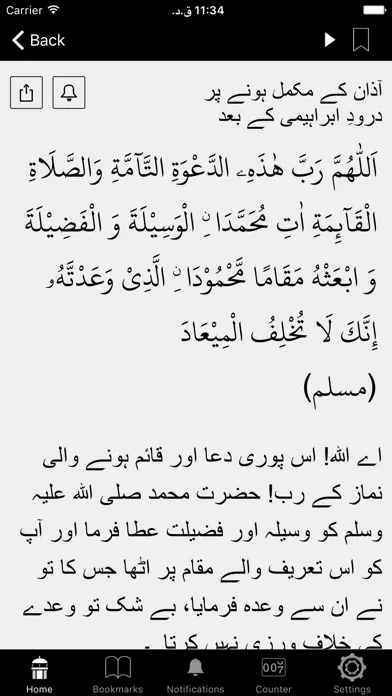 Carrier 11:34 ق.د.
Back
آذان کے مکمل ہونے پر
درودِ ابراہیمی کے بعد
اَللّٰهُمَّ رَبَّ هٰذِهِ الدَّعْوَةِ التَّآمَّةِ وَالصَّلَاةِ
الْقَآئِمَةِ اٰتِ مُحَمَّدَا ۨ الْوَسِيْلَةَ وَ الْفَضِيْلَةَ
وَ ابْعَثْهُ مَقَامًا مَّحْمُوْدَا ۨ الَّذِیْ وَعَدْتَّهٗ
إِنَّكَ لَا تُخْلِفُ الْمِيْعَادَ
(مسلم)
اے اللہ! اس پوری دعا اور قائم ہونے والی
نماز کے رب! حضرت محمد صلی اللہ علیہ
وسلم کو وسیلہ اور فضیلت عطا فرما اور آپ
کو اس تعریف والے مقام پر اٹھا جس کا تو
نے ان سے وعدہ فرمایا، بے شک تو وعدے
کے خلاف ورزی نہیں کرتا ۔
007
Home Bookmarks Notifications Counter Settings